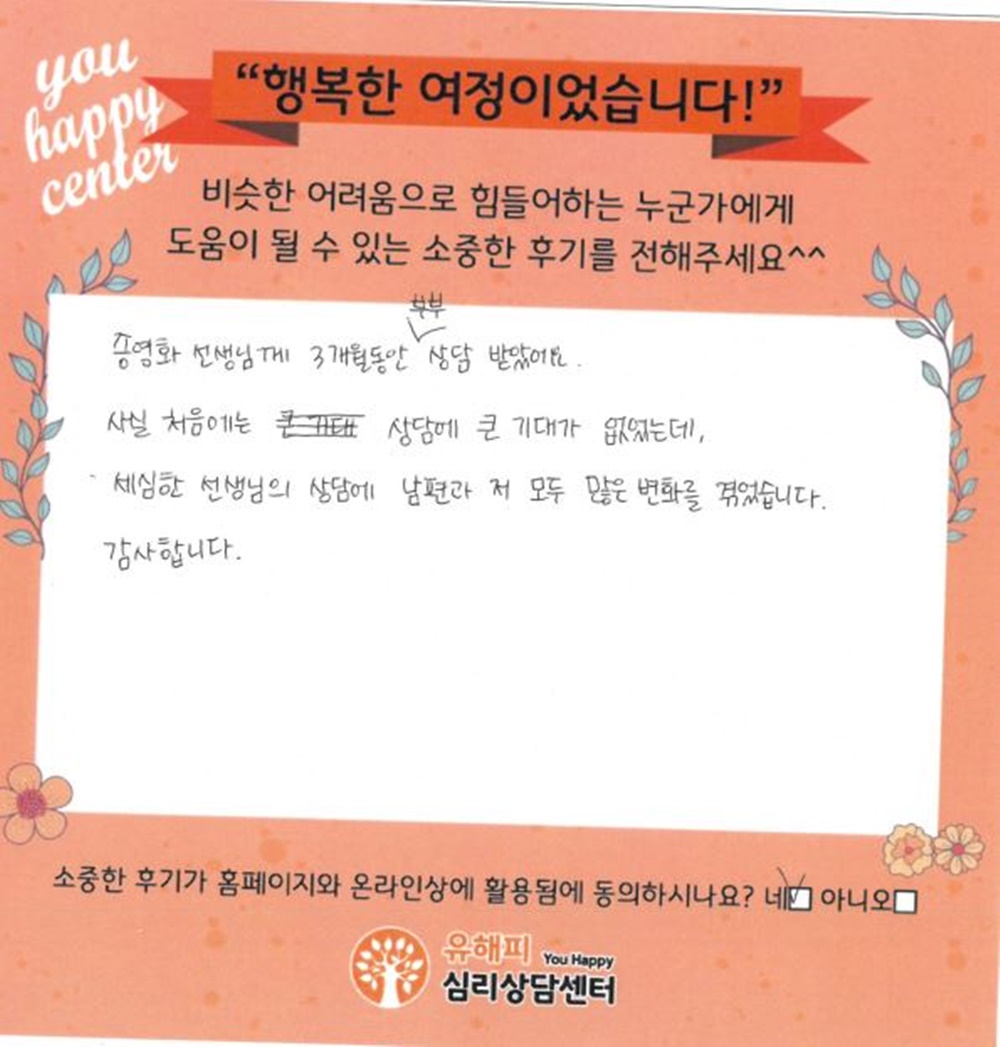 you
happy
center
“행복한 여정이었습니다!”
비슷한 어려움으로 힘들어하는 누군가에게
도움이 될 수 있는 소중한 후기를 전해주세요^^
부부
승영화 선생님께 3개월동안 상담 받았어요.
사실 처음에는 큰 기대 상담에 큰 기대가 없었는데,
세심한 선생님의 상담에 남편과 저 모두 많은 변화를 겪었습니다.
감사합니다.
소중한 후기가 홈페이지와 온라인상에 활용됨에 동의하시나요? 네 아니오
유해피 You Happy
심리상담센터